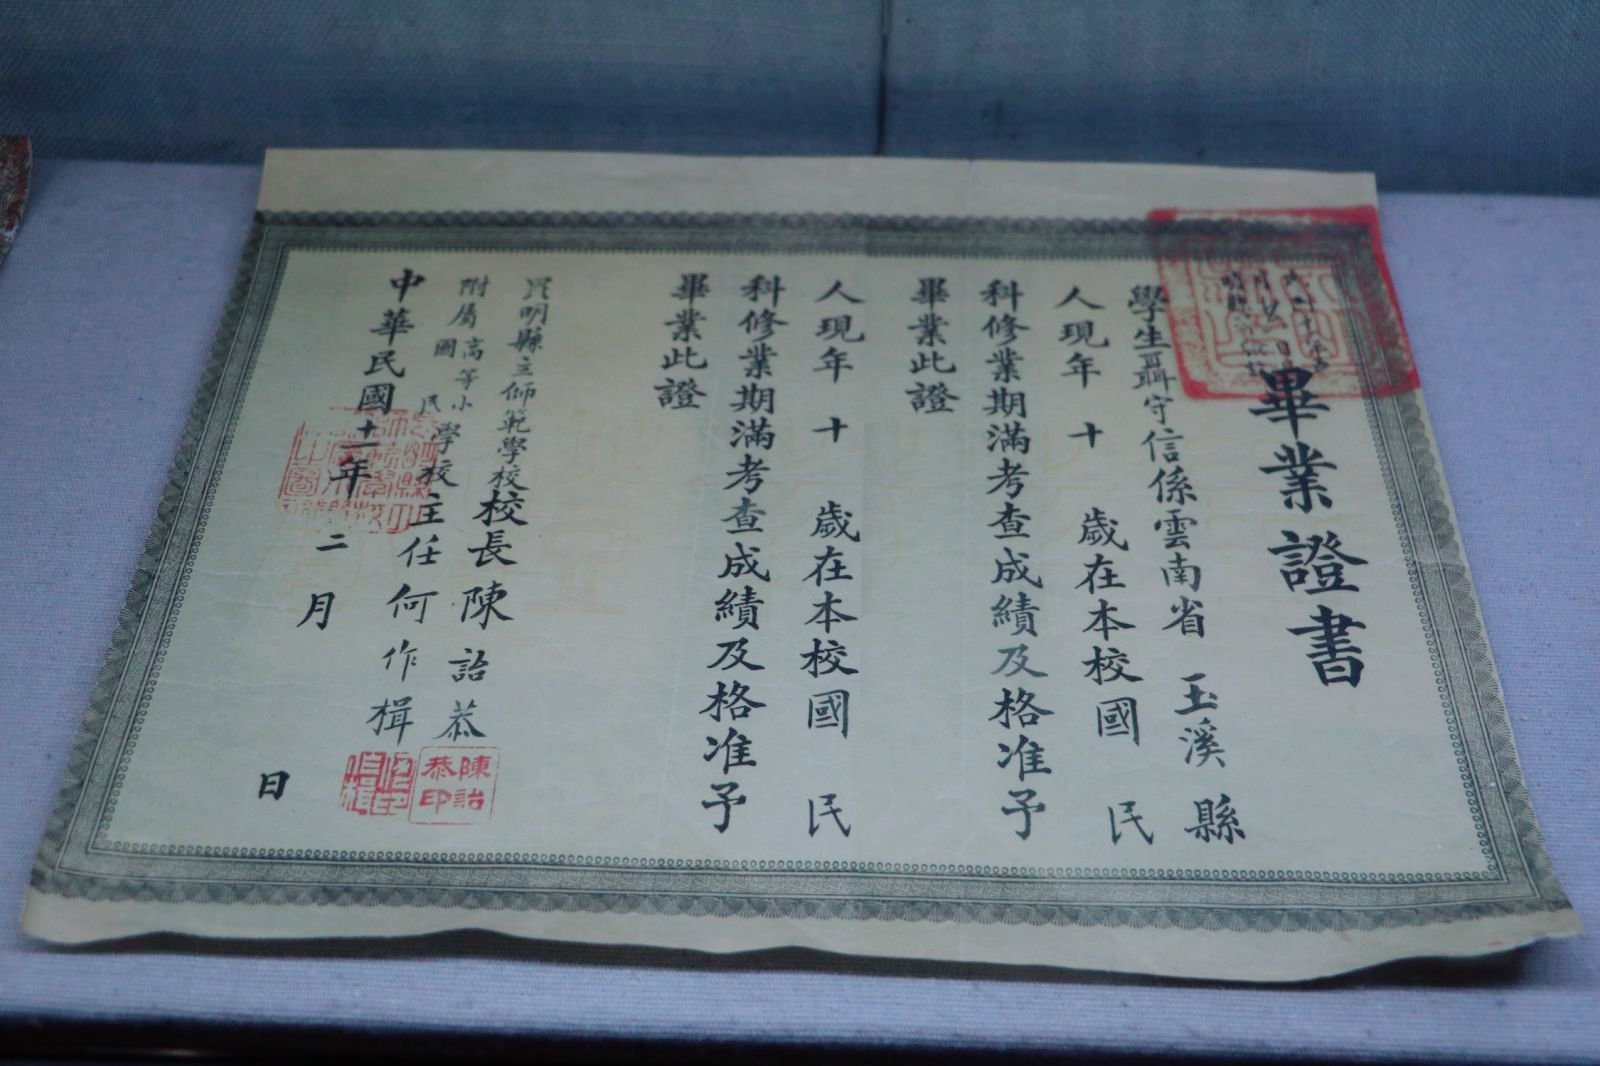 畢業證書
學生聶守信係雲南省玉溪縣
人現年十 歲在本校國民
科修業期滿考查成績及格准予
畢業此證
人現年十 歲在本校國民
科修業期滿考查成績及格准予
畢業此證
昆明縣立師範學校校長陳詒恭
附屬高等小學校主任何作楫
國民
中華民國十一年二月 日
陳詒恭印